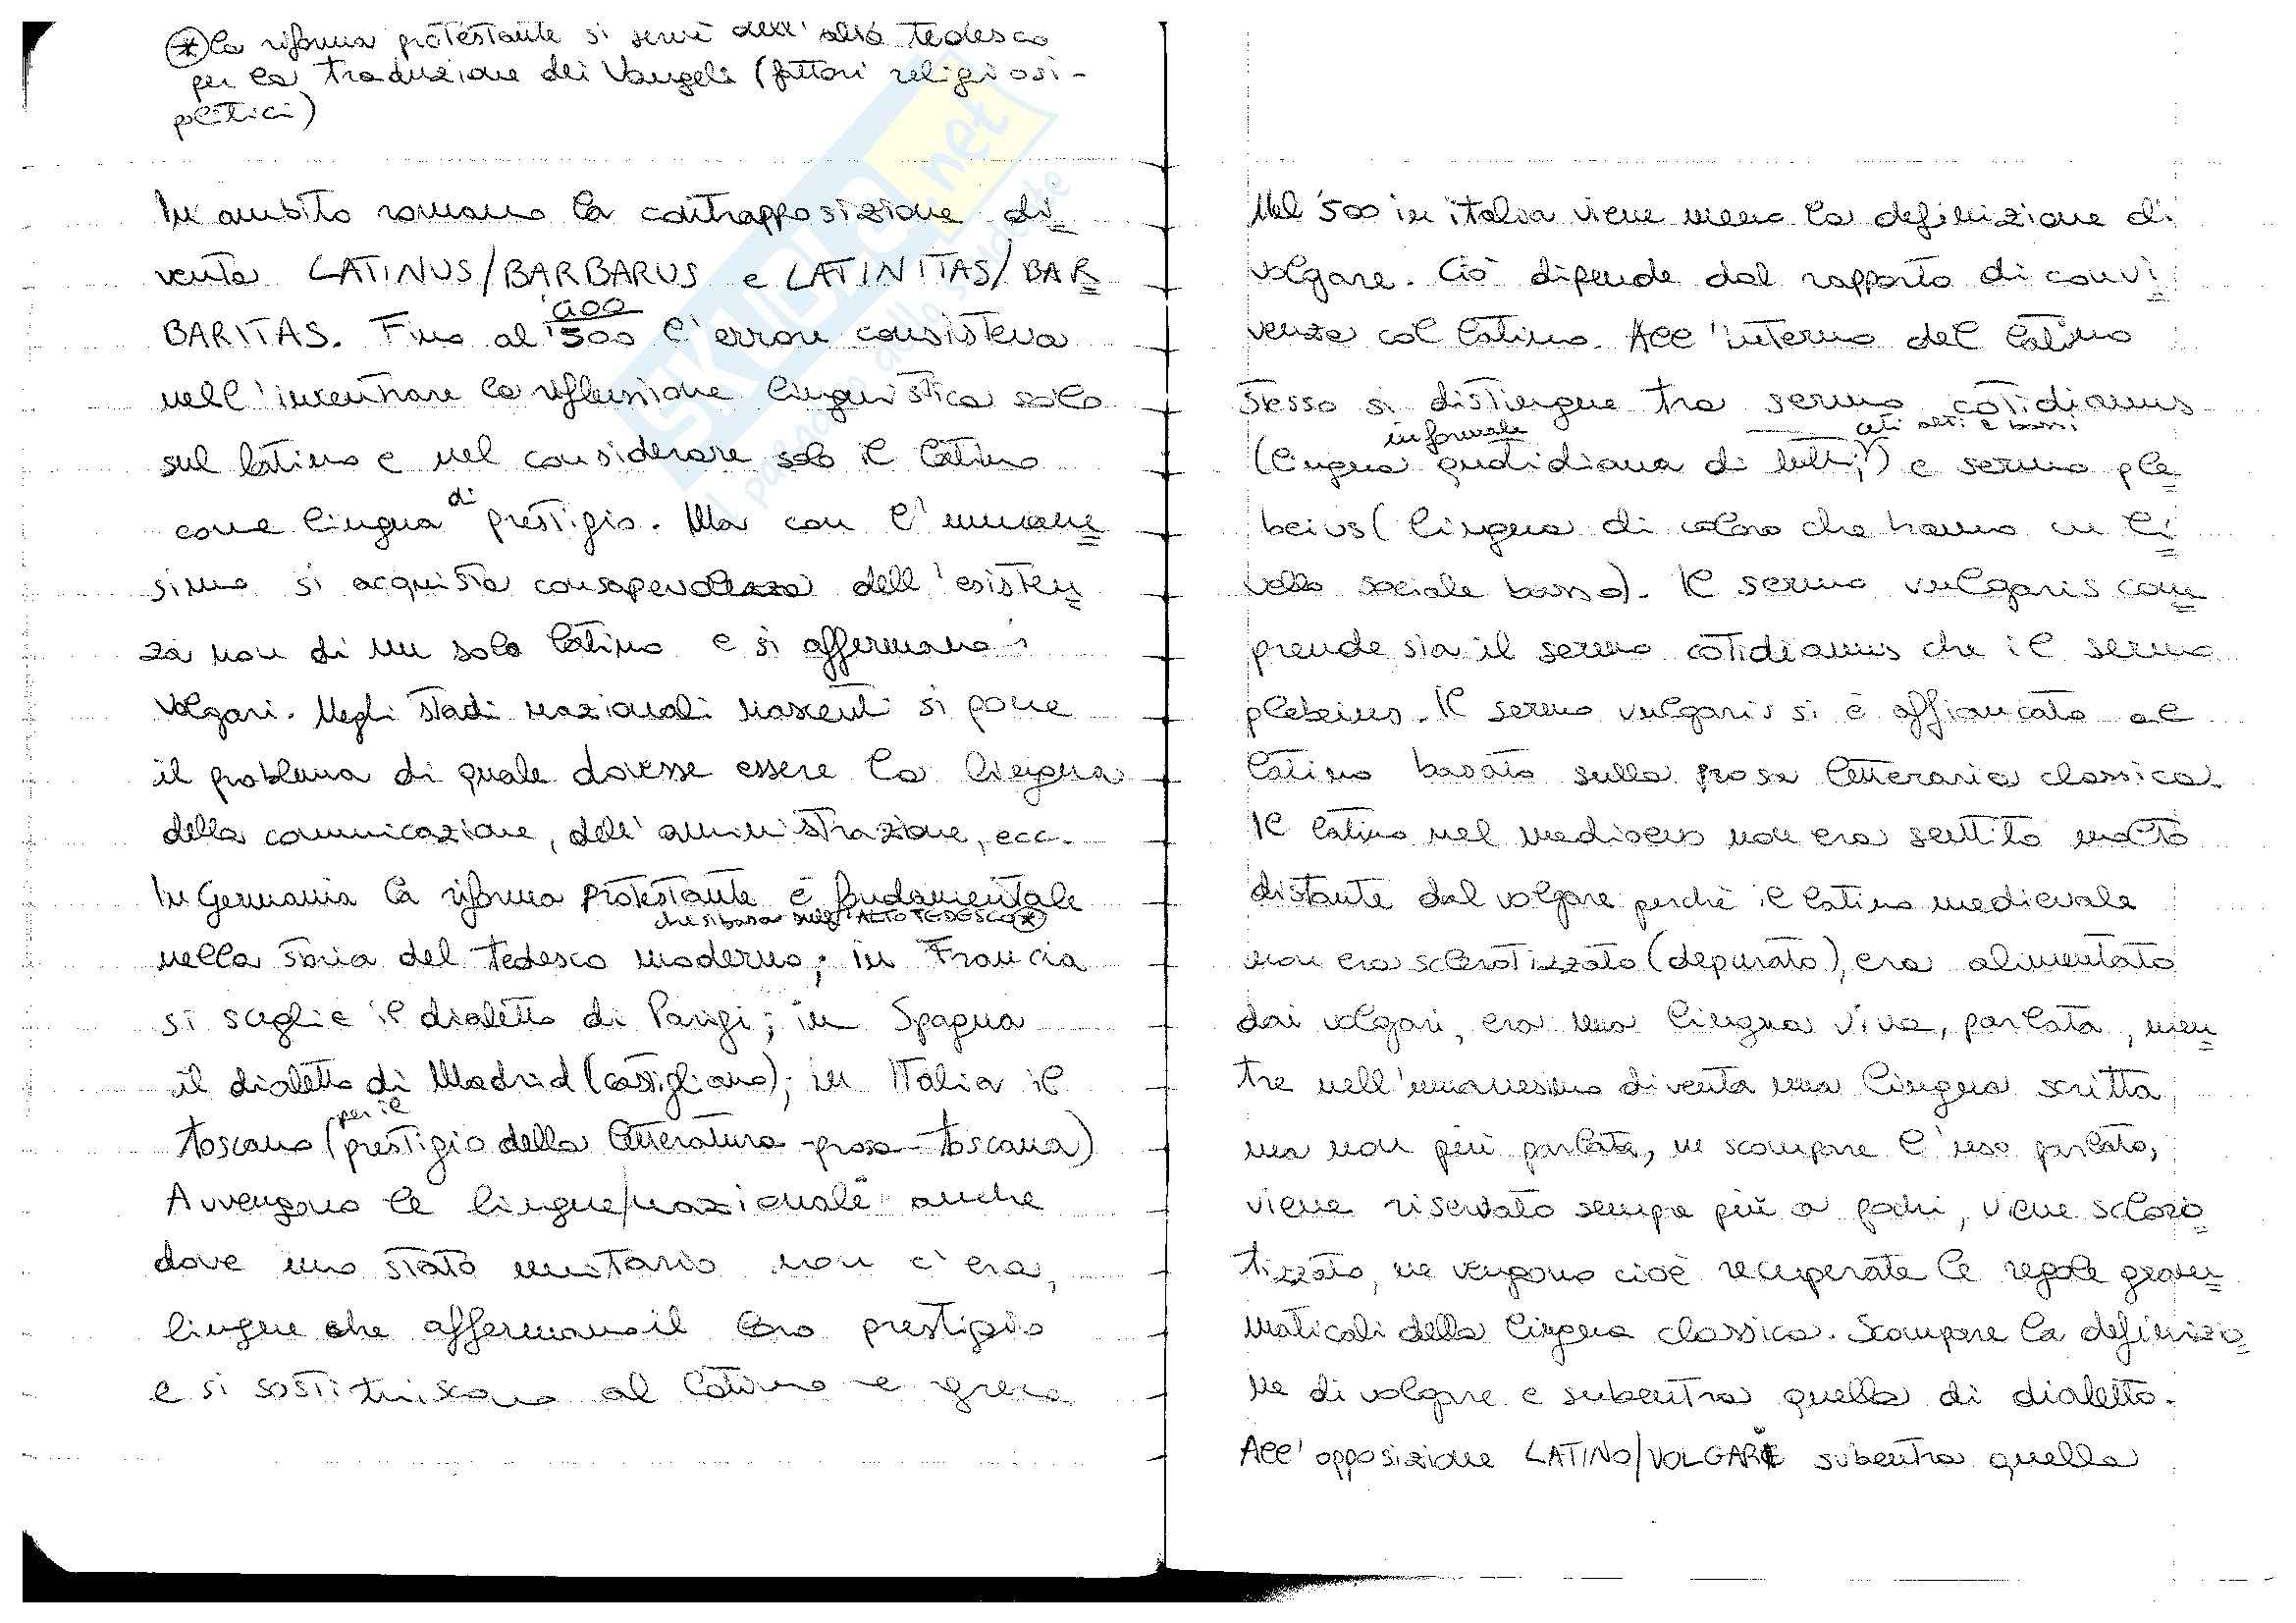 ⊛ la riforma protestante si servì dell'alto tedesco
per la traduzione dei Vangeli (fattori religiosi-
politici)
In ambito romano la contrapposizione di=
venta LATINUS/BARBARUS e LATINITAS/BAR=
'400
BARITAS. Fino al '500 l'errore consisteva
nell'incentrare la riflessione linguistica solo
sul latino e nel considerare solo il latino
come lingua di prestigio. Ma con l'umane=
simo si acquista consapevolezza dell'esisten=
za non di un solo latino e si affermano i
volgari. Negli stadi nazionali nascenti si pone
il problema di quale dovesse essere la lingua
della comunicazione, dell'amministrazione, ecc.
In Germania la riforma protestante è fondamentale
che si basa sull'ALTO TEDESCO ⊛
nella storia del tedesco moderno; in Francia
si sceglie il dialetto di Parigi; in Spagna
il dialetto di Madrid (castigliano); in Italia il
per il
toscano (prestigio della letteratura-prosa-toscana)
Avvengono le lingue/nazionali anche
dove uno stato unitario non c'era,
lingue che affermano il loro prestigio
e si sostituiscono al latino e greco
Nel '500 in italia viene meno la definizione di
volgare. Ciò dipende dal rapporto di convi=
venza col latino. All'interno del latino
stesso si distingue tra sermo cotidianus
informale ceti alti e bassi
(lingua quotidiana di tutti,) e sermo ple=
beius (lingua di coloro che hanno un li=
vello sociale basso). Il sermo vulgaris com=
prende sia il sermo cotidianus che il sermo
plebeius. Il sermo vulgaris si è affiancato al
latino basato sulla prosa letteraria classica.
Il latino nel medioevo non era sentito molto
distante dal volgare perchè il latino medievale
non era sclerotizzato (depurato), era alimentato
dai volgari, era una lingua viva, parlata, men=
tre nell'umanesimo diventa una lingua scritta
ma non più parlata, ne scompare l'uso parlato,
viene riservato sempre più a pochi, viene sclero=
tizzato, ne vengono cioè recuperate le regole gram=
maticali della lingua classica. Scompare la definizio=
ne di volgare e subentra quella di dialetto.
All'opposizione LATINO/VOLGARI subentra quella
SKUOLA.net
il paradiso dello studente